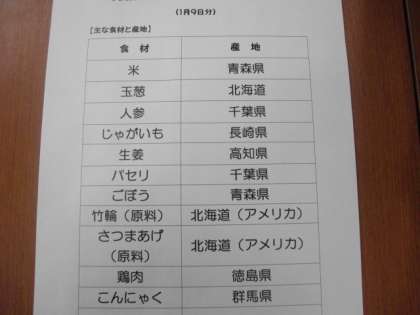 (1月9日分)
【主な食材と産地】
食材 産地
米 青森県
玉葱 北海道
人参 千葉県
じゃがいも 長崎県
生姜 高知県
パセリ 千葉県
ごぼう 青森県
竹輪（原料） 北海道（アメリカ）
さつまあげ
（原料） 北海道（アメリカ）
鶏肉 徳島県
こんにゃく 群馬県